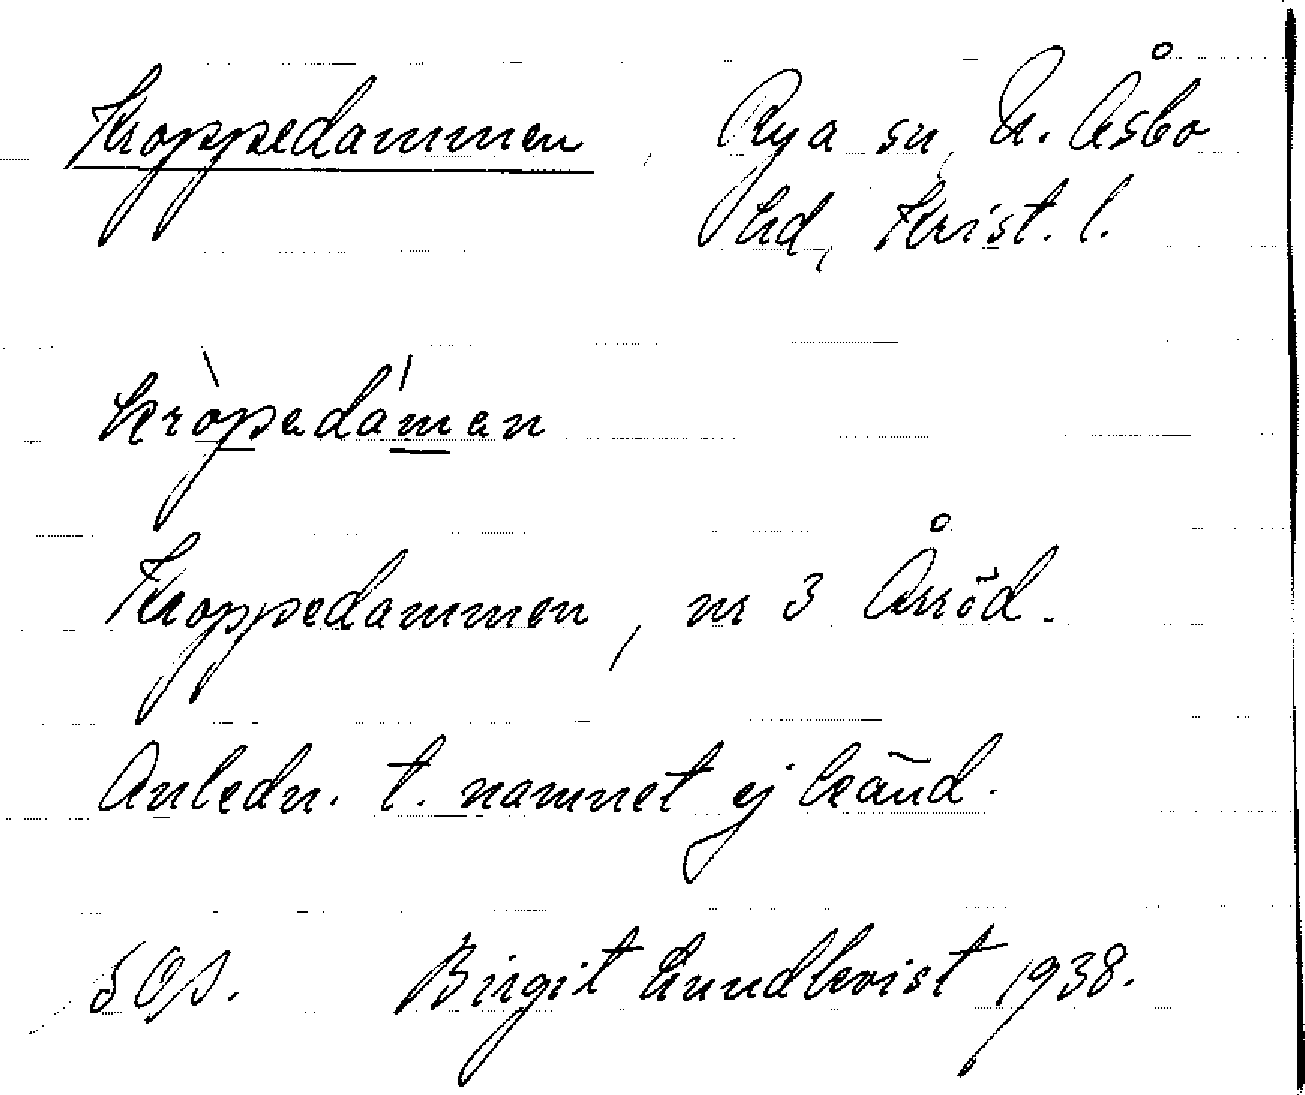 Kroppedammen, Rya sn, N. Åsbo
hd, Krist. l.
kròpedámen
Kroppedammen, nr 3 Årröd.
Anledn. t. namnet ej känd.
Birgit Lundkvist 1938.